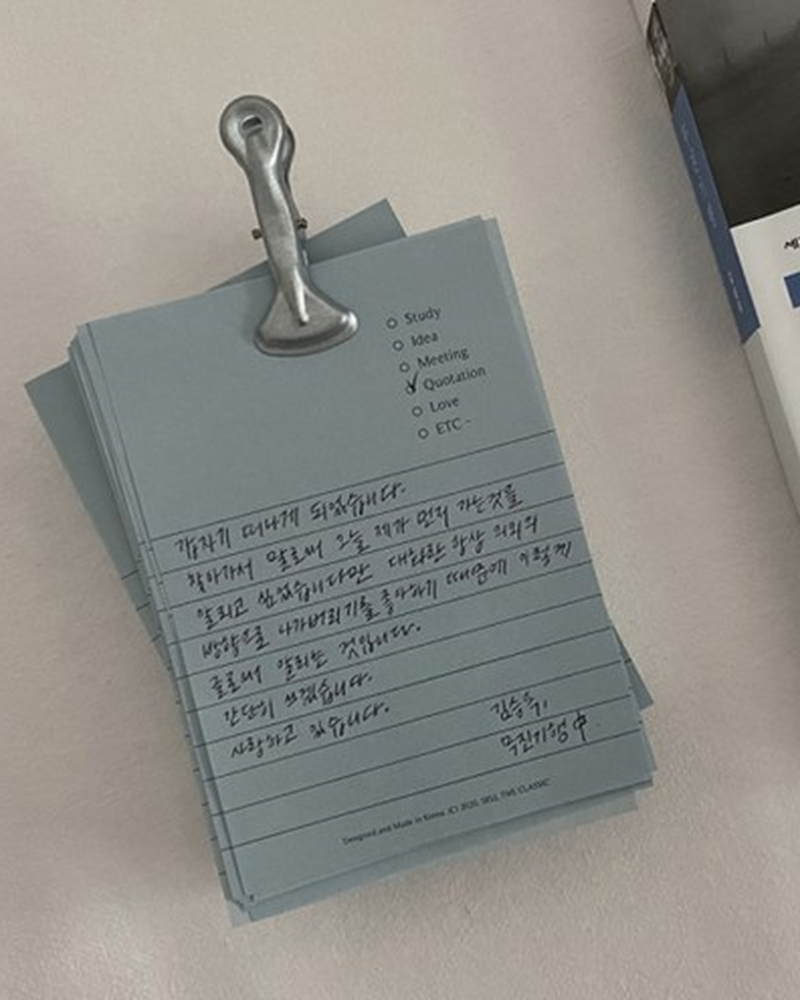 Study
Idea
Meeting
Quotation
Love
ETC -
갑자기 떠나게 되었습니다.
찾아가서 말로써 오늘 제가 먼저 가는것을
알리고 싶었습니다만 대화란 항상 의외의
방향으로 나가버리기를 좋아하기 때문에 이렇게
글로써 알리는 것입니다.
간단히 쓰겠습니다.
사랑하고 있습니다.
김승옥,
무진기행 中
Designed and Made in Korea. (C) 2020. SELL THE CLASSIC